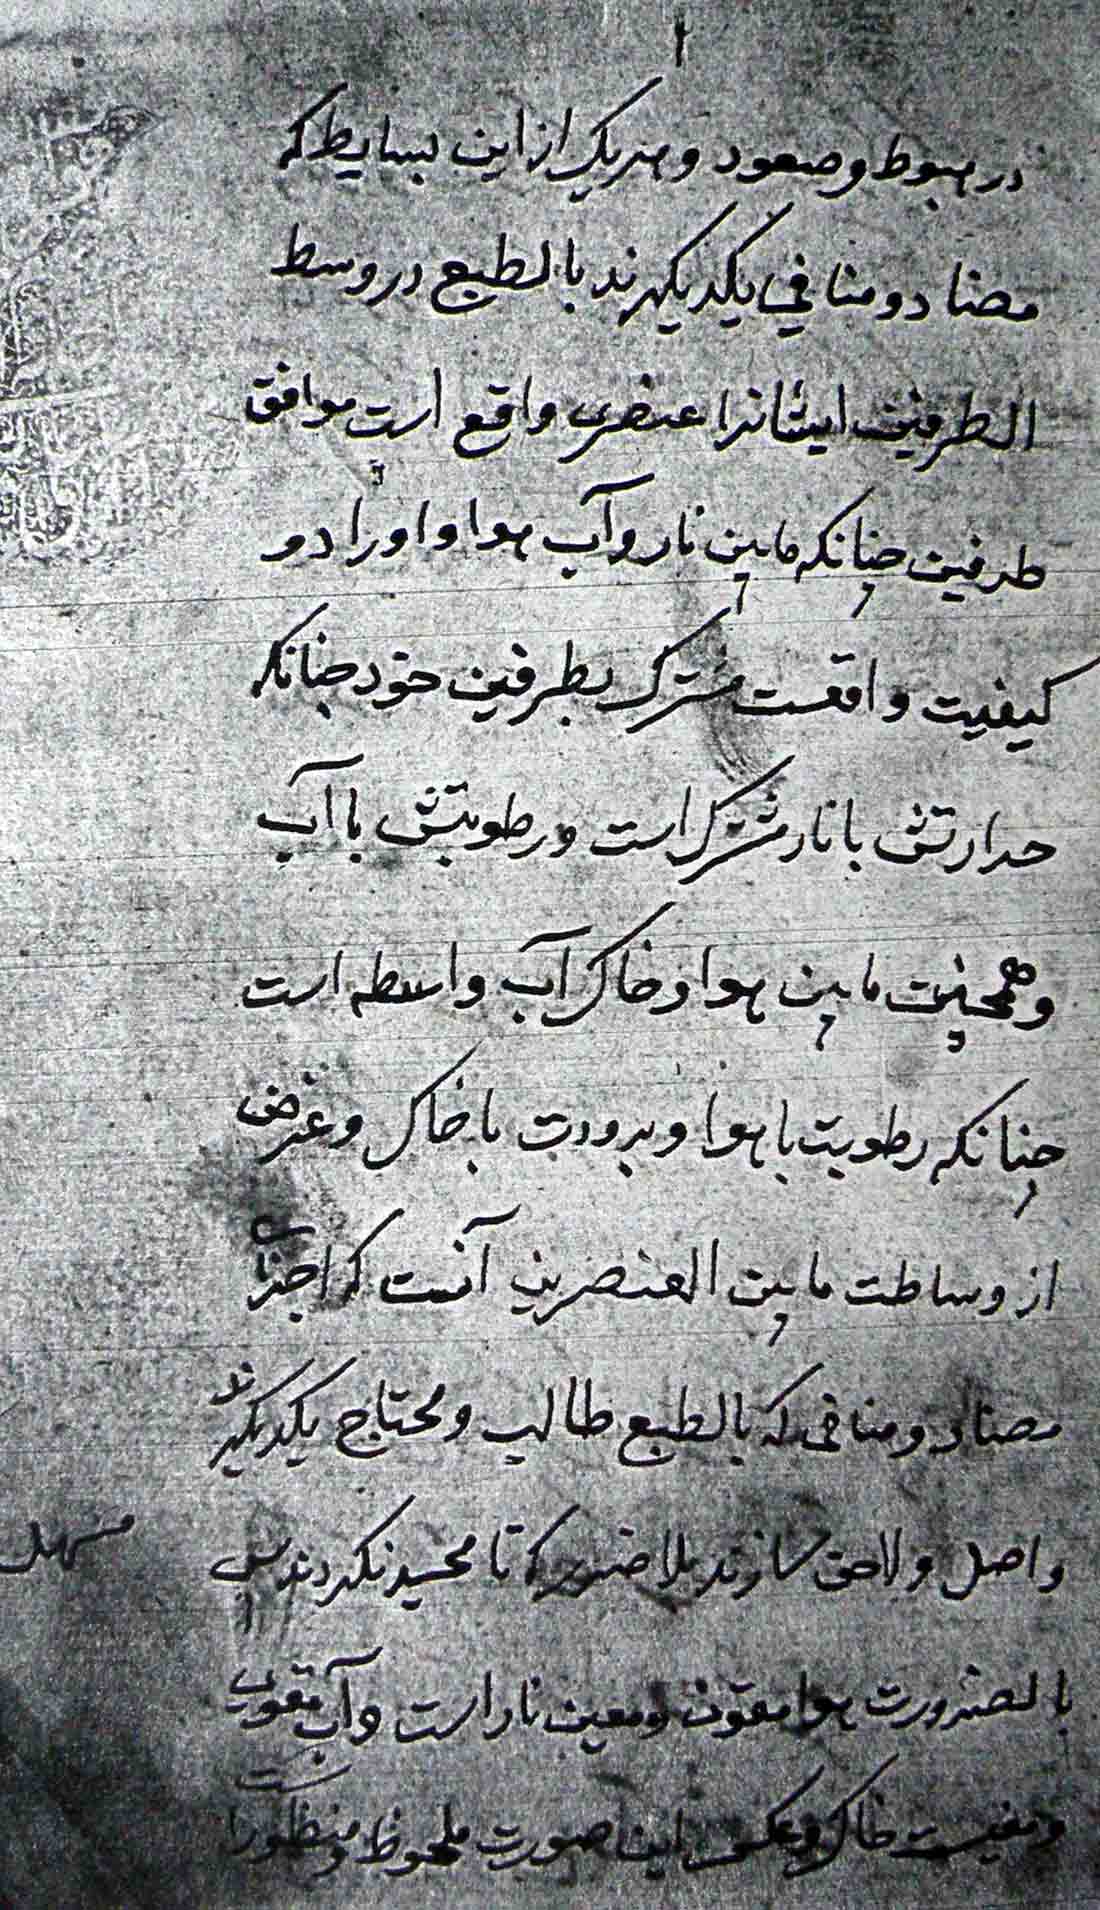 در هبوط و صعود و هر یک از این بسایط که
مضاد و منافی یکدیکرند بالطبع در وسط
الطرفین ایشانرا عنصری واقع است موافق
طرفین چنانکه مابین نار و آب هوا و او را دو
کیفیت واقعست مشترک بطرفین خود چنانکه
حرارتش با نار مشترک است و رطوبتش با آب
و همچنین مابین هوا و خاک آب واسطه است
چنانکه رطوبت با هوا و برودت با خاک و غرض
از وساطت مابین العنصرین آنست که اجزای
مضاد و منافی که بالطبع طالب و محتاج یکدیکرند
واصل و لاحق سازند بلا ضرر که تا نکردند پس
بالضرورت هوا مقوی و معین نار است و آب مقوی
و معین خاک و عکس این صورت ملحوظ و منظور است